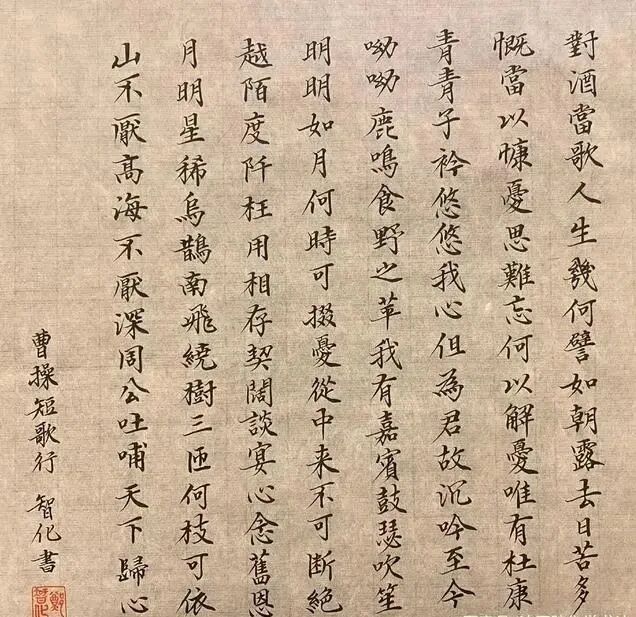 對酒當歌人生幾何譬如朝露去日苦多
慨當以慷憂思難忘何以解憂唯有杜康
青青子衿悠悠我心但為君故沉吟至今
呦呦鹿鳴食野之苹我有嘉賓鼓瑟吹笙
明明如月何時可掇憂從中来不可断絕
越陌度阡枉用相存契闊談宴心念舊恩
月明星稀烏鵲南飛繞樹三匝何枝可依
山不厭高海不厭深周公吐哺天下歸心
曹操短歌行 智化書